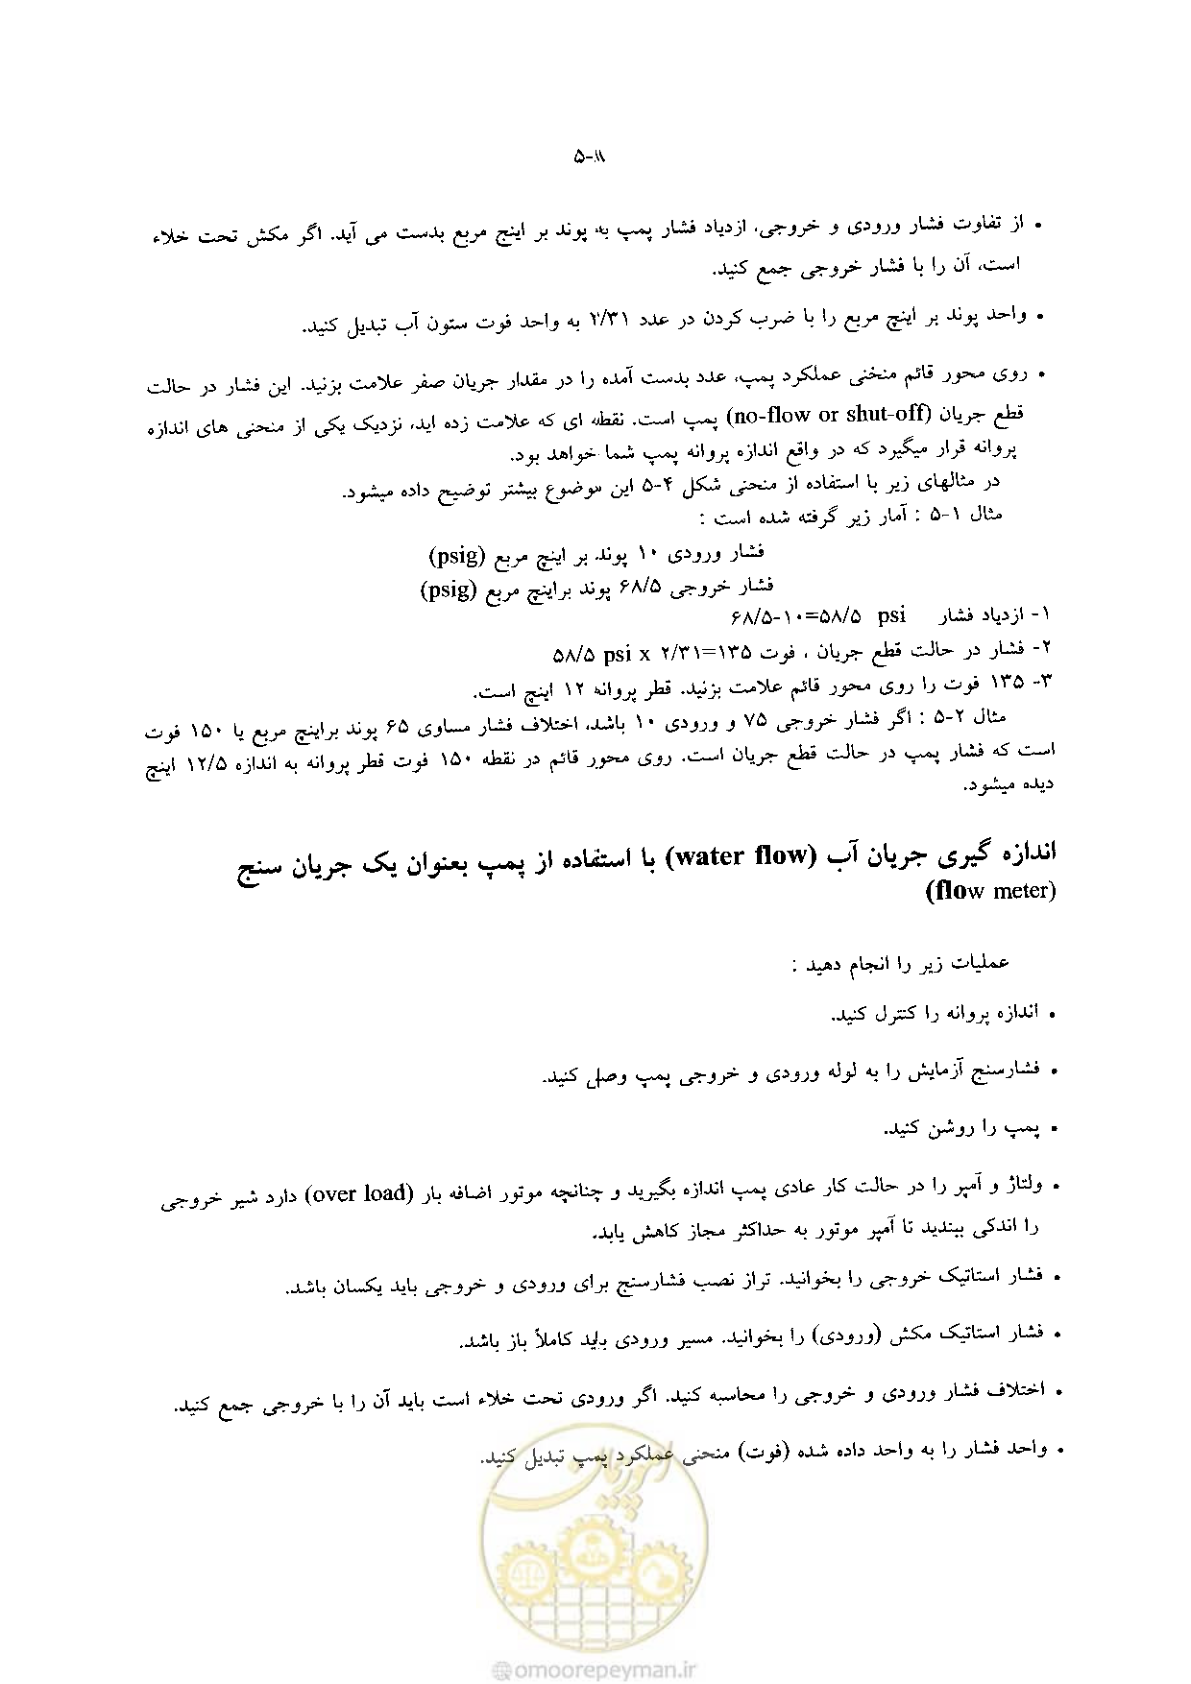 ۵-۱۱
• از تفاوت فشار ورودی و خروجی، ازدیاد فشار پمپ به پوند بر اینچ مربع بدست می آید. اگر مکش تحت خلاء
است، آن را با فشار خروجی جمع کنید.
• واحد پوند بر اینچ مربع را با ضرب کردن در عدد ۲/۳۱ به واحد فوت ستون آب تبدیل کنید.
• روی محور قائم منحنی عملکرد پمپ، عدد بدست آمده را در مقدار جریان صفر علامت بزنید. این فشار در حالت
قطع جریان (no-flow or shut-off) پمپ است. نقطه ای که علامت زده اید، نزدیک یکی از منحنی های اندازه
پروانه قرار میگیرد که در واقع اندازه پروانه پمپ شما خواهد بود.
در مثالهای زیر با استفاده از منحنی شکل ۴-۵ این موضوع بیشتر توضیح داده میشود.
مثال ۱-۵ : آمار زیر گرفته شده است :
فشار ورودی ۱۰ پوند بر اینچ مربع (psig)
فشار خروجی ۶۸/۵ پوند براینچ مربع (psig)
۱- ازدیاد فشار ۶۸/۵-۱۰=۵۸/۵ psi
۲- فشار در حالت قطع جریان ، فوت ۵۸/۵ psi x ۲/۳۱=۱۳۵
۳- ۱۳۵ فوت را روی محور قائم علامت بزنید. قطر پروانه ۱۲ اینچ است.
مثال ۲-۵ : اگر فشار خروجی ۷۵ و ورودی ۱۰ باشد، اختلاف فشار مساوی ۶۵ پوند براینچ مربع یا ۱۵۰ فوت
است که فشار پمپ در حالت قطع جریان است. روی محور قائم در نقطه ۱۵۰ فوت قطر پروانه به اندازه ۱۲/۵ اینچ
دیده میشود.
اندازه گیری جریان آب (water flow) با استفاده از پمپ بعنوان یک جریان سنج
(flow meter)
عملیات زیر را انجام دهید :
• اندازه پروانه را کنترل کنید.
• فشارسنج آزمایش را به لوله ورودی و خروجی پمپ وصل کنید.
• پمپ را روشن کنید.
• ولتاژ و آمپر را در حالت کار عادی پمپ اندازه بگیرید و چنانچه موتور اضافه بار (over load) دارد شیر خروجی
را اندکی ببندید تا آمپر موتور به حداکثر مجاز کاهش یابد.
• فشار استاتیک خروجی را بخوانید. تراز نصب فشارسنج برای ورودی و خروجی باید یکسان باشد.
• فشار استاتیک مکش (ورودی) را بخوانید. مسیر ورودی باید کاملاً باز باشد.
• اختلاف فشار ورودی و خروجی را محاسبه کنید. اگر ورودی تحت خلاء است باید آن را با خروجی جمع کنید.
• واحد فشار را به واحد داده شده (فوت) منحنی عملکرد پمپ تبدیل کنید.
امورپیمان
@omoorepeyman.ir